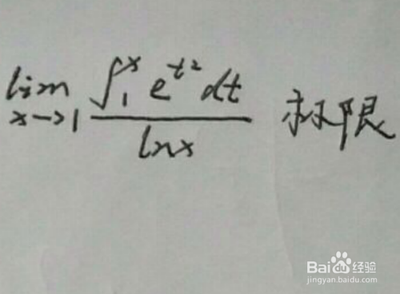 lim x→1 ∫₁ˣ e^{t²} dt / ln x 极限
Baidu经验
jingyan.baidu.com